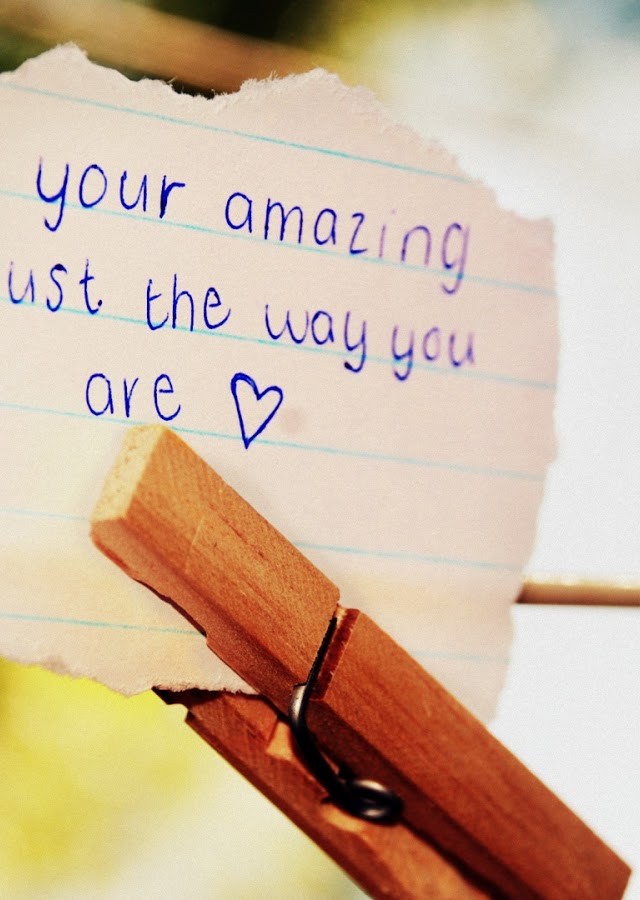 your amazing
ust the way you
are ♡